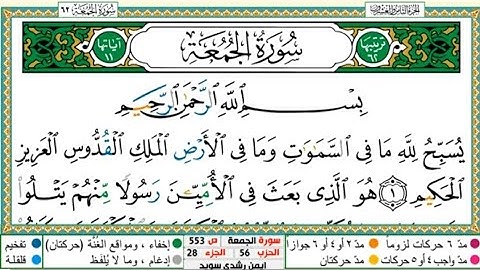 سُورَةُ الجُمُعَة ٦٢
ترتيبها ٦٢
سُورَةُ الجُمُعَة
آياتها ١١
بِسْمِ ٱللَّهِ ٱلرَّحْمَٰنِ ٱلرَّحِيمِ
يُسَبِّحُ لِلَّهِ مَا فِي ٱلسَّمَٰوَٰتِ وَمَا فِي ٱلْأَرْضِ ٱلْمَلِكِ ٱلْقُدُّوسِ ٱلْعَزِيزِ
ٱلْحَكِيمِ ١ هُوَ ٱلَّذِي بَعَثَ فِي ٱلْأُمِّيِّـۧنَ رَسُولًا مِّنْهُمْ يَتْلُوا۟
مدّ ٦ حركات لزوماً
مدّ ٢ أو ٤ أو ٦ جوازاً
مدّ واجب ٤ أو ٥ حركات
مدّ حركتان
سورة الجمعة
ص 553
الحزب 56
الجزء 28
أيمن رشدي سويد
إخفاء، ومواقع الغُنَّة (حركتان)
إدغام، وما لا يُلفَظ
تفخيم
قلقلة